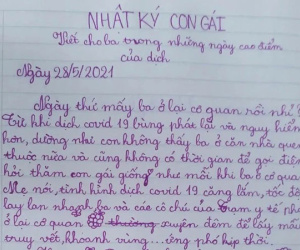 NHẬT KÝ CON GÁI
Viết cho ba trong những ngày cao điểm
của dịch
Ngày 28/5/2021
Ngày thứ mấy ba ở lại cơ quan rồi nhỉ
Từ khi dịch covid 19 bùng phát lại và nguy hiểm
hơn, dường như con không thấy ba ở căn nhà quen
thuộc nữa và cũng không có thời gian để gọi điện
hỏi thăm con gái giống như mỗi khi ba ở cơ quan
Mẹ nói, tình hình dịch covid 19 càng lắm, tốc độ
lây lan nhanh, ba và các cô chú của trạm y tế phải
ở lại cơ quan thường xuyên đêm để lấy mẫu
truy vết, khoanh vùng... ứng phó kịp thời.